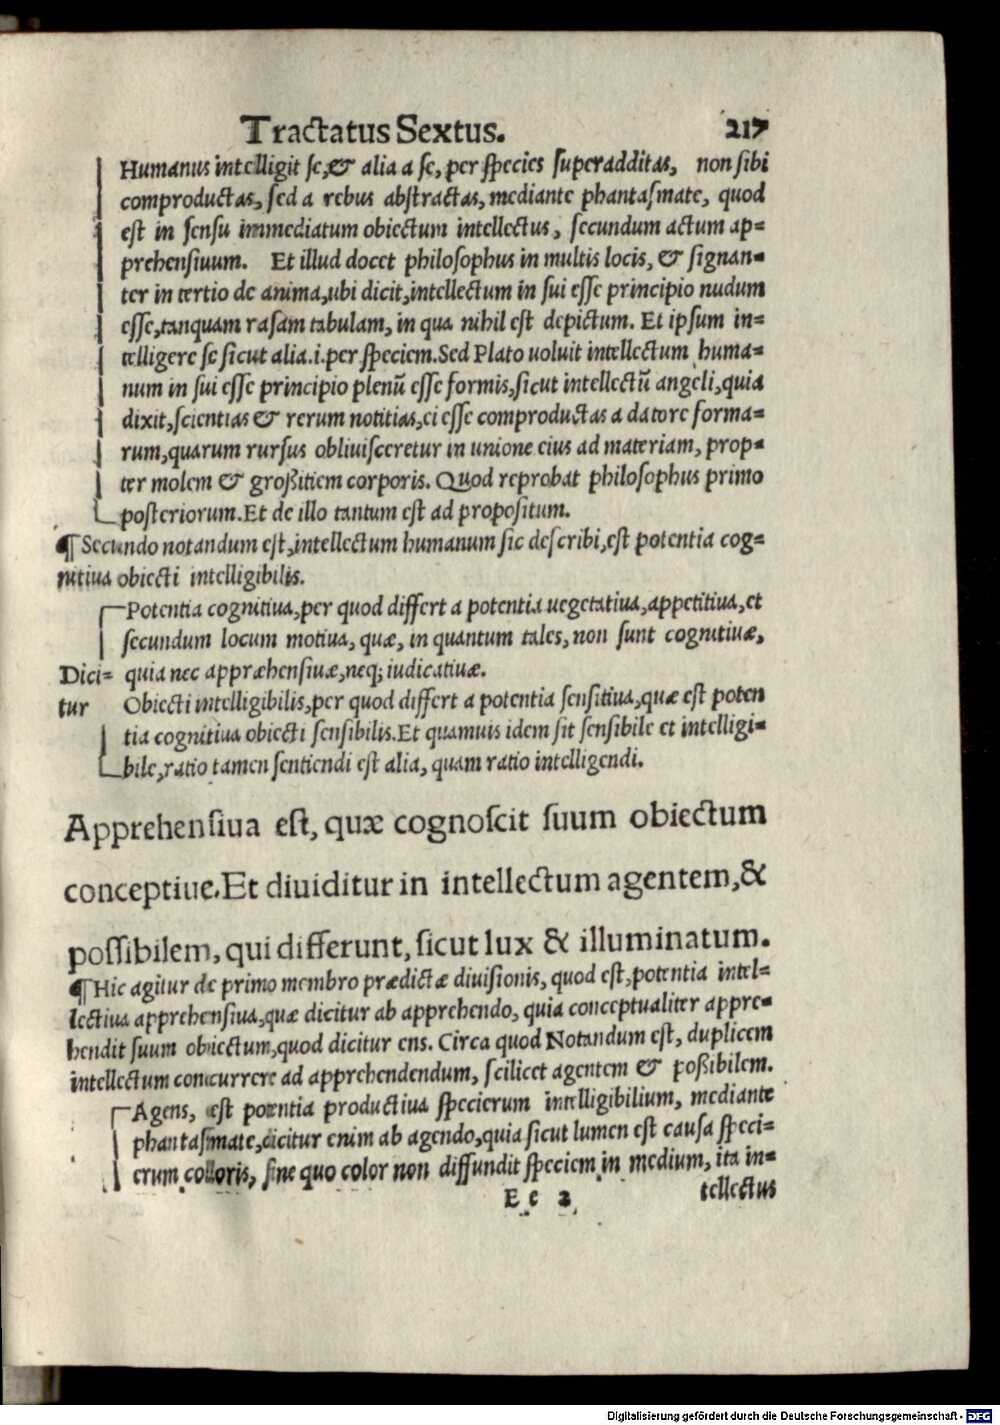 Tractatus Sextus. 217
Humanus intelligit se, & alia a se, per species superadditas, non sibi
comproductas, sed a rebus abstractas, mediante phantasmate, quod
est in sensu immediatum obiectum intellectus, secundum actum ap=
prehensiuum. Et illud docet philosophus in multis locis, & signan=
ter in tertio de anima, ubi dicit, intellectum in sui esse principio nudum
esse, tanquam rasam tabulam, in qua nihil est depictum. Et ipsum in=
telligere se sicut alia .i. per speciem. Sed Plato uoluit intellectum huma=
num in sui esse principio plenū esse formis, sicut intellectū angeli, quia
dixit, scientias & rerum notitias, ei esse comproductas a datore forma=
rum, quarum rursus obliuisceretur in unione eius ad materiam, prop=
ter molem & großitiem corporis. Quod reprobat philosophus primo
posteriorum. Et de illo tantum est ad propositum.
¶ Secundo notandum est, intellectum humanum sic describi, est potentia cog=
nitiua obiecti intelligibilis.
Potentia cognitiua, per quod differt a potentia uegetatiua, appetitiua, et
secundum locum motiua, quæ, in quantum tales, non sunt cognitiuæ,
Dici= quia nec appræhensiuæ, neq; iudicatiuæ.
tur Obiecti intelligibilis, per quod differt a potentia sensitiua, quæ est poten
tia cognitiua obiecti sensibilis. Et quamuis idem sit sensibile et intelligi=
bile, ratio tamen sentiendi est alia, quam ratio intelligendi.
Apprehensiua est, quæ cognoscit suum obiectum
conceptiue. Et diuiditur in intellectum agentem, &
possibilem, qui differunt, sicut lux & illuminatum.
¶ Hic agitur de primo membro prædictæ diuisionis, quod est, potentia intel=
lectiua apprehensiua, quæ dicitur ab apprehendo, quia conceptualiter appre=
hendit suum obiectum, quod dicitur ens. Circa quod Notandum est, duplicem
intellectum concurrere ad apprehendendum, scilicet agentem & poßibilem.
Agens, est potentia productiua specierum intelligibilium, mediante
phantasmate, dicitur enim ab agendo, quia sicut lumen est causa speci=
erum colloris, sine quo color non diffundit speciem in medium, ita in=
E e 2 tellectus
Digitalisierung gefördert durch die Deutsche Forschungsgemeinschaft - DFG